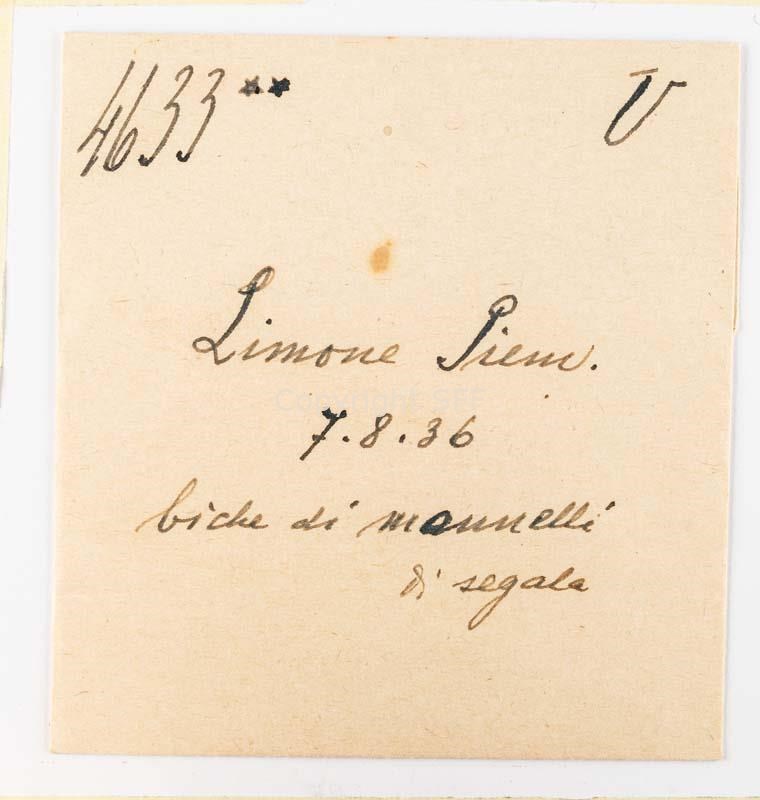 4633** V
Limone Piem.
7.8.36
biche di mannelli
di segala